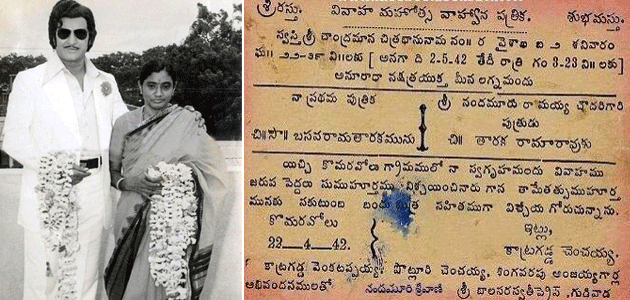 శ్రీరస్తు. వివాహ మహోత్స వాహ్వాన పత్రిక. శుభమస్తు.
స్వస్తిశ్రీ చాంద్రమాన చిత్రభానునామ సం॥ ర వైశాఖ బ ౨ శనివారం
ఘ॥ ౨౨-౩౯ వి॥లకు [ అనగా ది 2-5-42 తేదీ రాత్రి గం 3-23 ని॥ లకు]
అనూరాధా నక్షత్రయుక్త మీన లగ్నమందు
నా ప్రథమ పుత్రిక
శ్రీ నందమూరు రామయ్య చౌదరిగారి
పుత్రుడు
చి॥సౌ॥ బసవరామతారకమును
చి॥ తారక రామారావుకు
యిచ్చి కొమరవోలు గ్రామములో నా స్వగృహమందు వివాహము
జరుప పెద్దలు సుముహూర్తము నిశ్చయించినారు గాన తామేతత్సుముహూర్త
మునకు సకుటుంబ బంధు మిత్ర సహితముగా విచ్చేయ గోరుచున్నాను.
కొమరవోలు
ఇట్లు,
22—4—42.
కాట్రగడ్డ చెంచయ్య.
కాట్రగడ్డ వెంకటప్పయ్య, పొట్లూరి చెంచయ్య, సింగవరపు అంజయ్యగార్ల
అభివందనములతో
నందమూరి శ్రీవాణి
శ్రీ బాలసరస్వతీప్రెస్, గుడివాడ